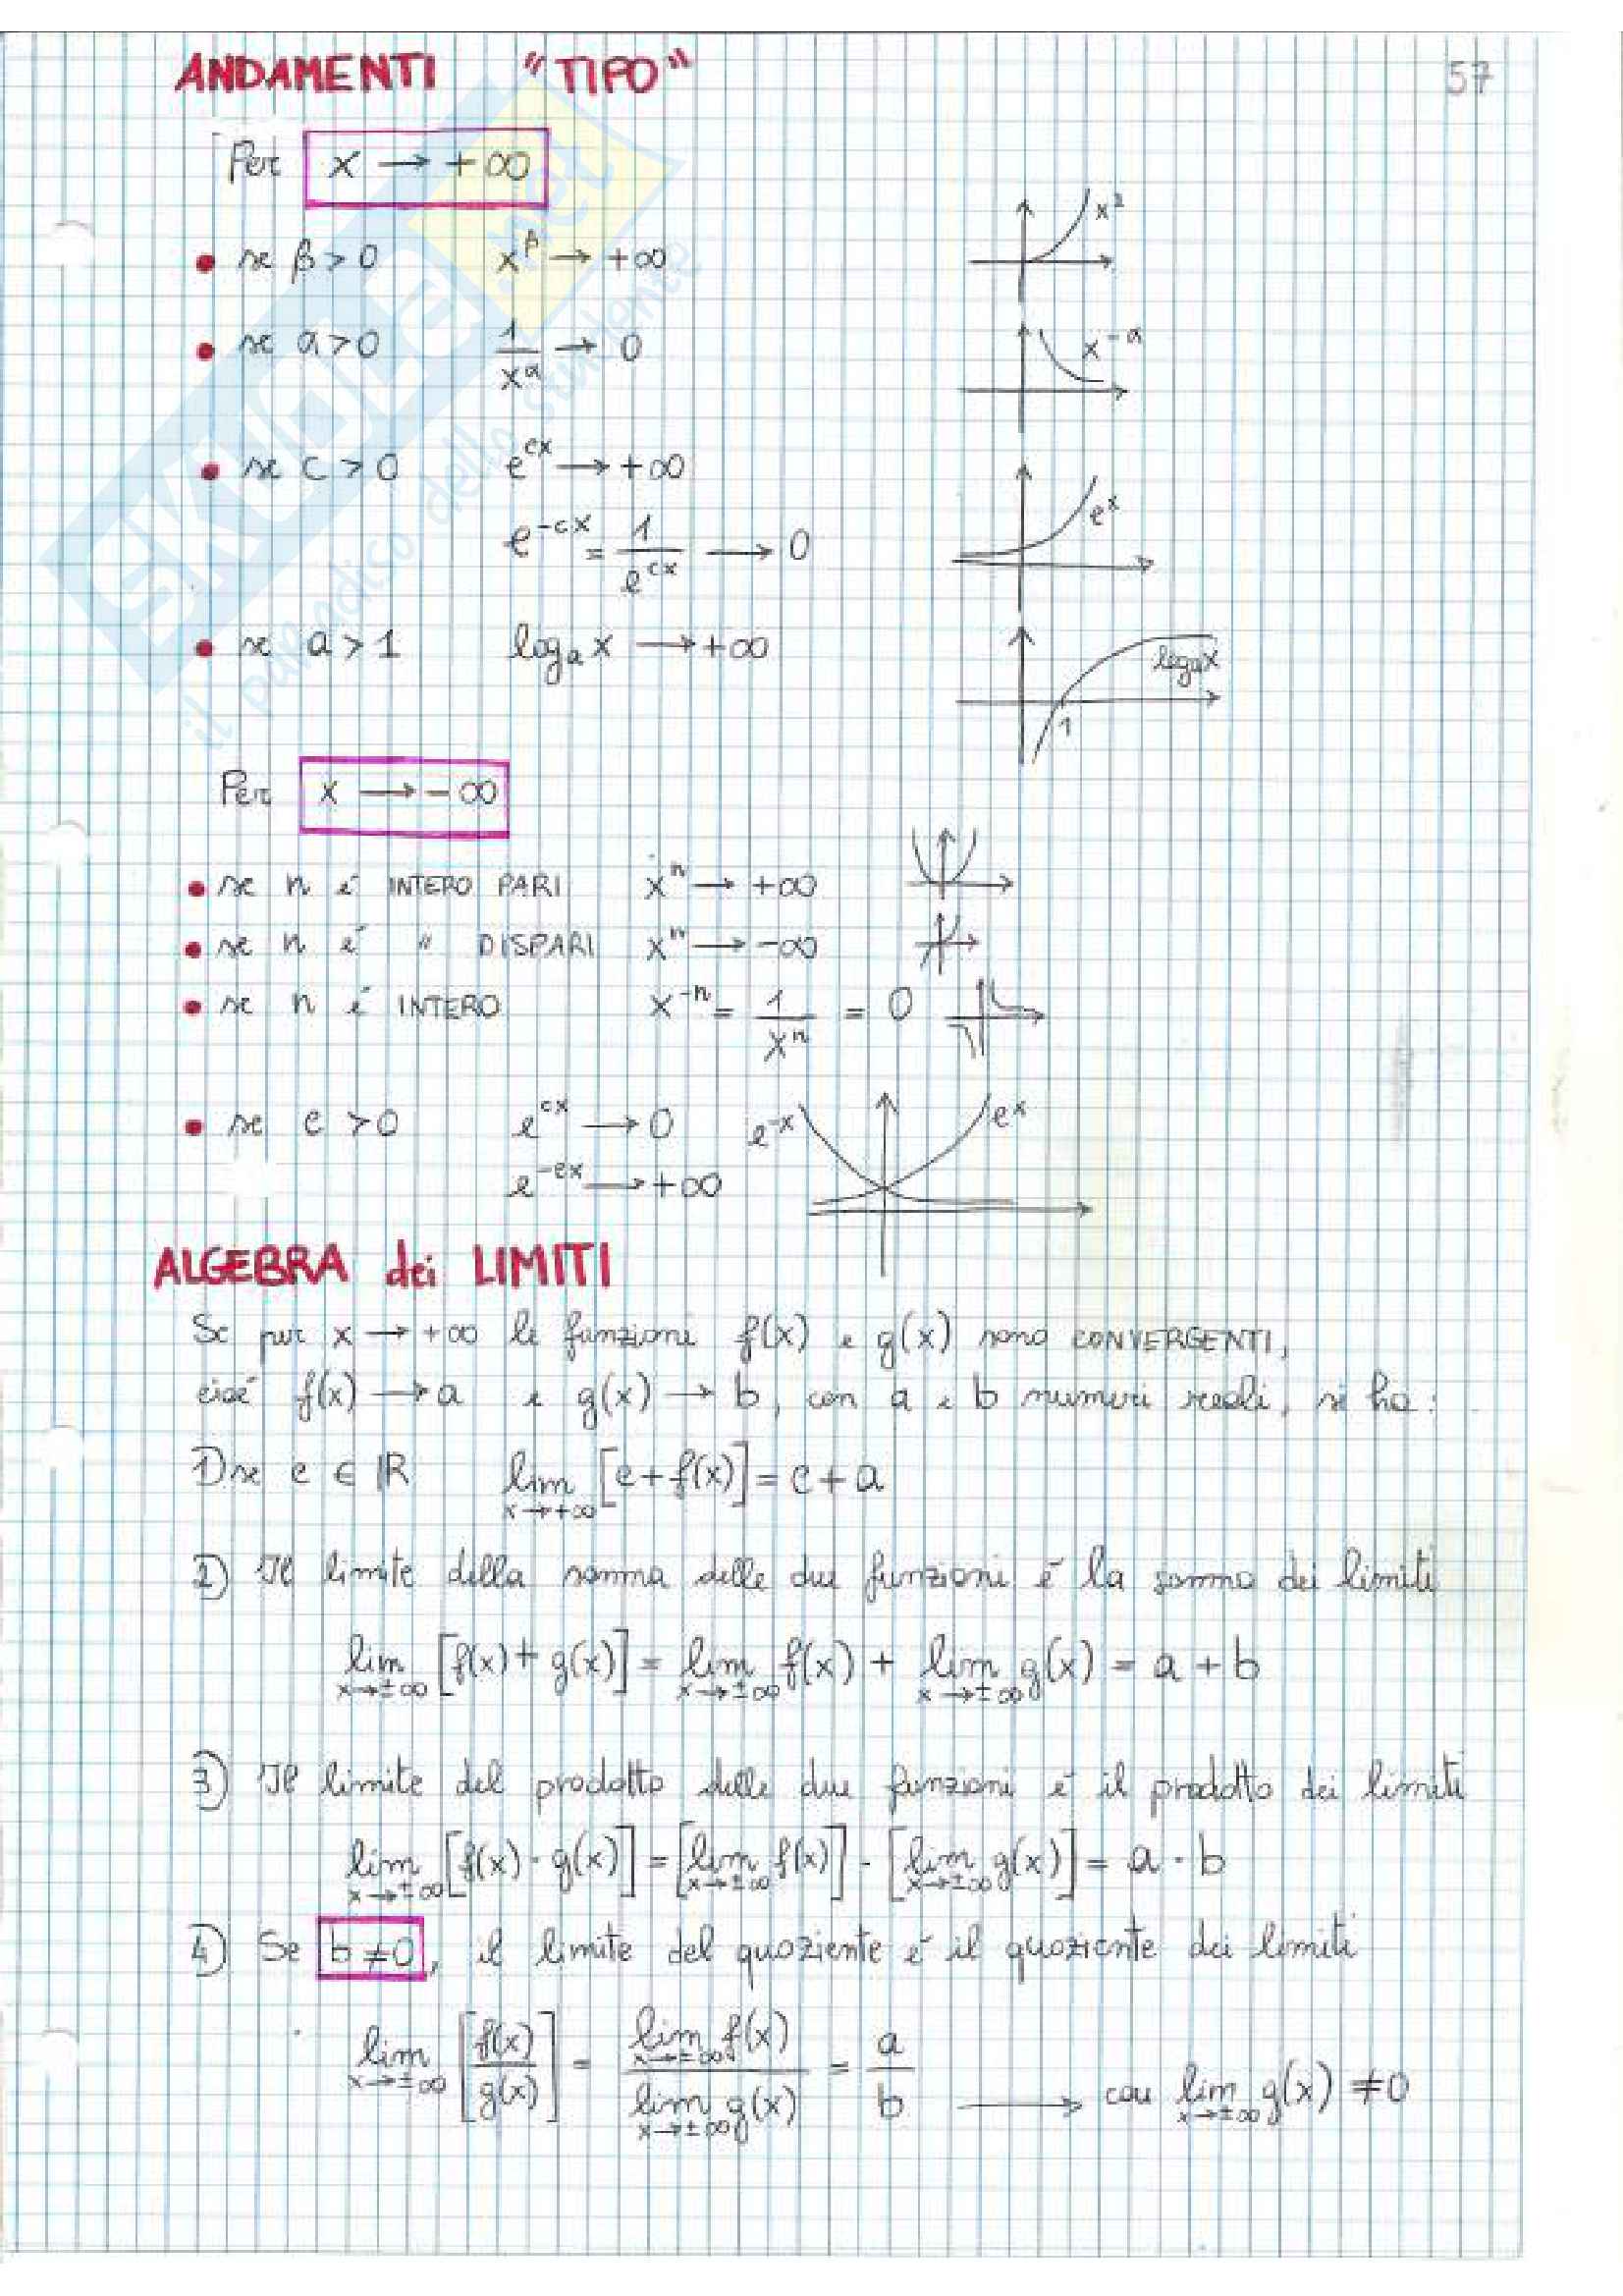 ANDAMENTI "TIPO"
57
Per x → +∞
• se β > 0 x^β → +∞
x²
• se a > 0 1/x^a → 0
x^-a
• se c > 0 e^cx → +∞
e^x
e^-cx = 1/e^cx → 0
• se a > 1 log_a x → +∞
log_a x
1
Per x → -∞
• se n é INTERO PARI x^n → +∞
• se n é " DISPARI x^n → -∞
• se n é INTERO x^-n = 1/x^n = 0
• se c > 0 e^cx → 0
e^-x e^x
e^-cx → +∞
ALGEBRA dei LIMITI
Se per x → +∞ le funzioni f(x) e g(x) sono CONVERGENTI,
cioé f(x) → a e g(x) → b, con a e b numeri reali, si ha:
1) se c ∈ ℝ lim x→+∞ [c + f(x)] = c + a
2) Il limite della somma delle due funzioni é la somma dei limiti
lim x→±∞ [f(x) + g(x)] = lim x→±∞ f(x) + lim x→±∞ g(x) = a + b
3) Il limite del prodotto delle due funzioni é il prodotto dei limiti
lim x→±∞ [f(x) · g(x)] = [lim x→±∞ f(x)] · [lim x→±∞ g(x)] = a · b
4) Se b ≠ 0, il limite del quoziente é il quoziente dei limiti
lim x→±∞ [f(x)/g(x)] = lim x→±∞ f(x) / lim x→±∞ g(x) = a/b → con lim x→±∞ g(x) ≠ 0
SKUOLA.net
il paradiso dello studente